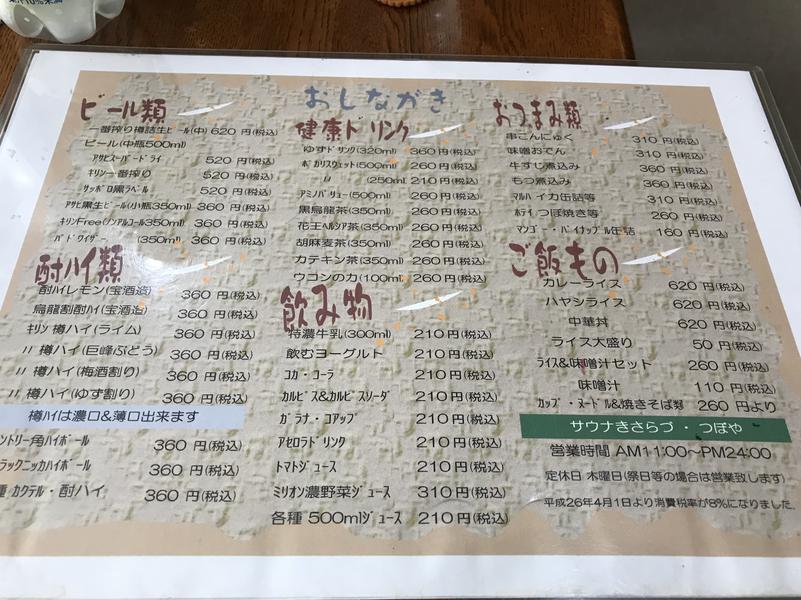 おしながき
ビール類
一番搾り樽詰生ビール(中) 620 円(税込)
ビール(中瓶500ml)
アサヒスーパードライ 520 円(税込)
キリン一番搾り 520 円(税込)
サッポロ黒ラベル 520 円(税込)
アサヒ黒生ビール(小瓶350ml) 360 円(税込)
キリンFree(ノンアルコール350ml) 360 円(税込)
バドワイザー (350ml) 360 円(税込)
酎ハイ類
酎ハイレモン(宝酒造) 360 円(税込)
烏龍割酎ハイ(宝酒造) 360 円(税込)
キリン 樽ハイ(ライム) 360 円(税込)
〃 樽ハイ(巨峰ぶどう) 360 円(税込)
〃 樽ハイ(梅酒割り) 360 円(税込)
〃 樽ハイ(ゆず割り) 360 円(税込)
樽ハイは濃口&薄口出来ます
ントリー角ハイボール 360 円(税込)
ラックニッカハイボール 360 円(税込)
種 カクテル・酎ハイ 360 円(税込)
健康ドリンク
ゆずドリンク(320ml) 360 円(税込)
ポカリスウェット(500ml) 260 円(税込)
〃 (250ml) 210 円(税込)
アミノバリュー(500ml) 260 円(税込)
黒烏龍茶(350ml) 260 円(税込)
花王ヘルシア茶(350ml) 260 円(税込)
胡麻麦茶(350ml) 260 円(税込)
カテキン茶(350ml) 260 円(税込)
ウコンの力(100ml) 260 円(税込)
飲み物
特濃牛乳(300ml) 210 円(税込)
飲むヨーグルト 210 円(税込)
コカ・コーラ 210 円(税込)
カルピス&カルピスソーダ 210 円(税込)
ガラナ・コアップ 210 円(税込)
アセロラドリンク 210 円(税込)
トマトジュース 210 円(税込)
ミリオン濃野菜ジュース 310 円(税込)
各種 500mlジュース 210 円(税込)
おつまみ類
串こんにゃく 310 円(税込)
味噌おでん 310 円(税込)
牛すじ煮込み 360 円(税込)
もつ煮込み 360 円(税込)
マルハ イカ缶詰等 310 円(税込)
ホテイ つぼ焼き等 260 円(税込)
マンゴー・パイナップル缶詰 160 円(税込)
ご飯もの
カレーライス 620 円(税込)
ハヤシライス 620 円(税込)
中華丼 620 円(税込)
ライス大盛り 50 円(税込)
ライス&味噌汁セット 260 円(税込)
味噌汁 110 円(税込)
カップ・ヌードル&焼きそば類 260 円より
サウナきさらづ・つぼや
営業時間 AM11:00～PM24:00
定休日 木曜日(祭日等の場合は営業致します)
平成26年4月1日より消費税率が8%になりました.